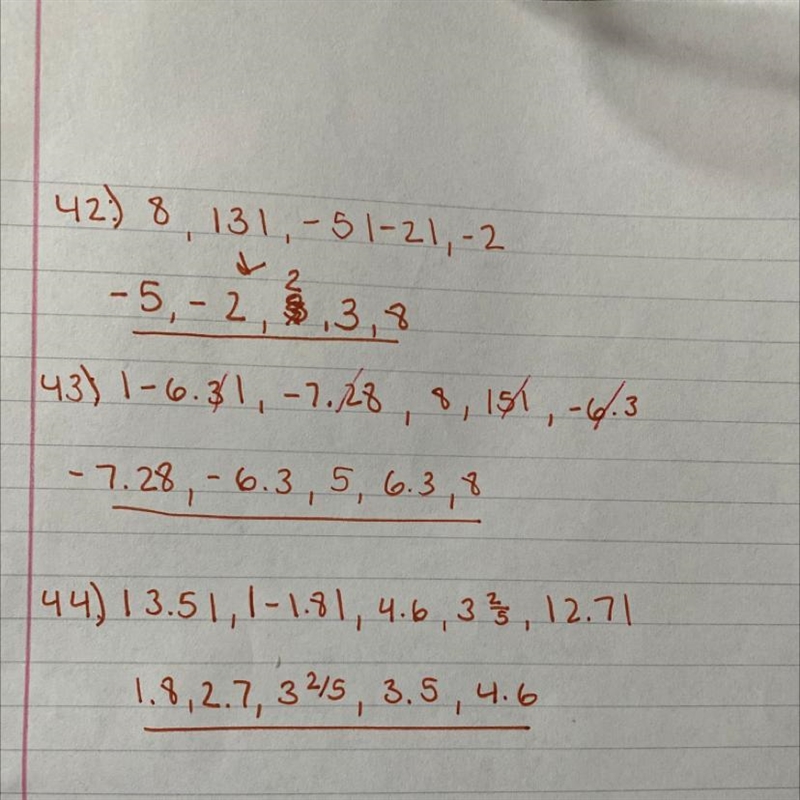 42:) 8, |3|, -5 |-2|, -2
-5, -2, 2, 3, 8
43) |-6.3|, -7.28, 8, |5|, -6.3
-7.28, -6.3, 5, 6.3, 8
44) |3.5|, |-1.8|, 4.6, 3 2/5, |2.7|
1.8, 2.7, 3 2/5, 3.5, 4.6